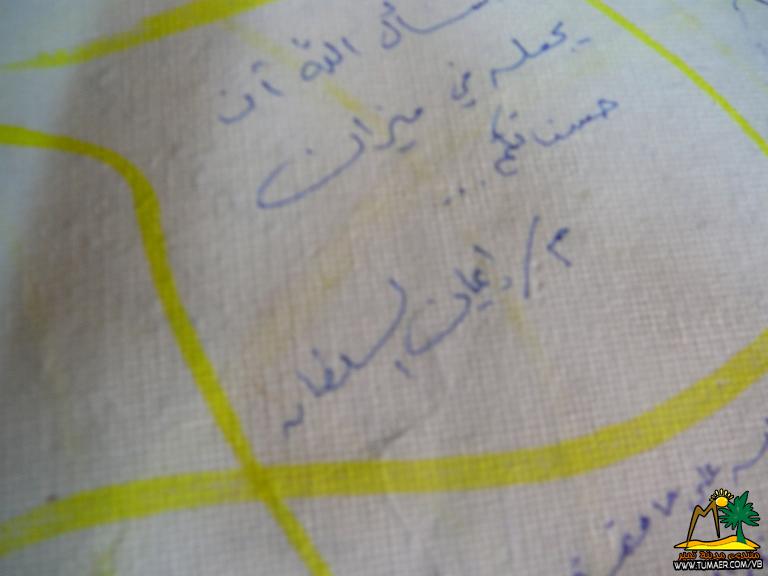 سائل الله أن
يجعله في ميزان
حسناتكم...
م/ إيمان السلطان
منتدى مدينة تمير
WWW.TUMAER.COM/VB